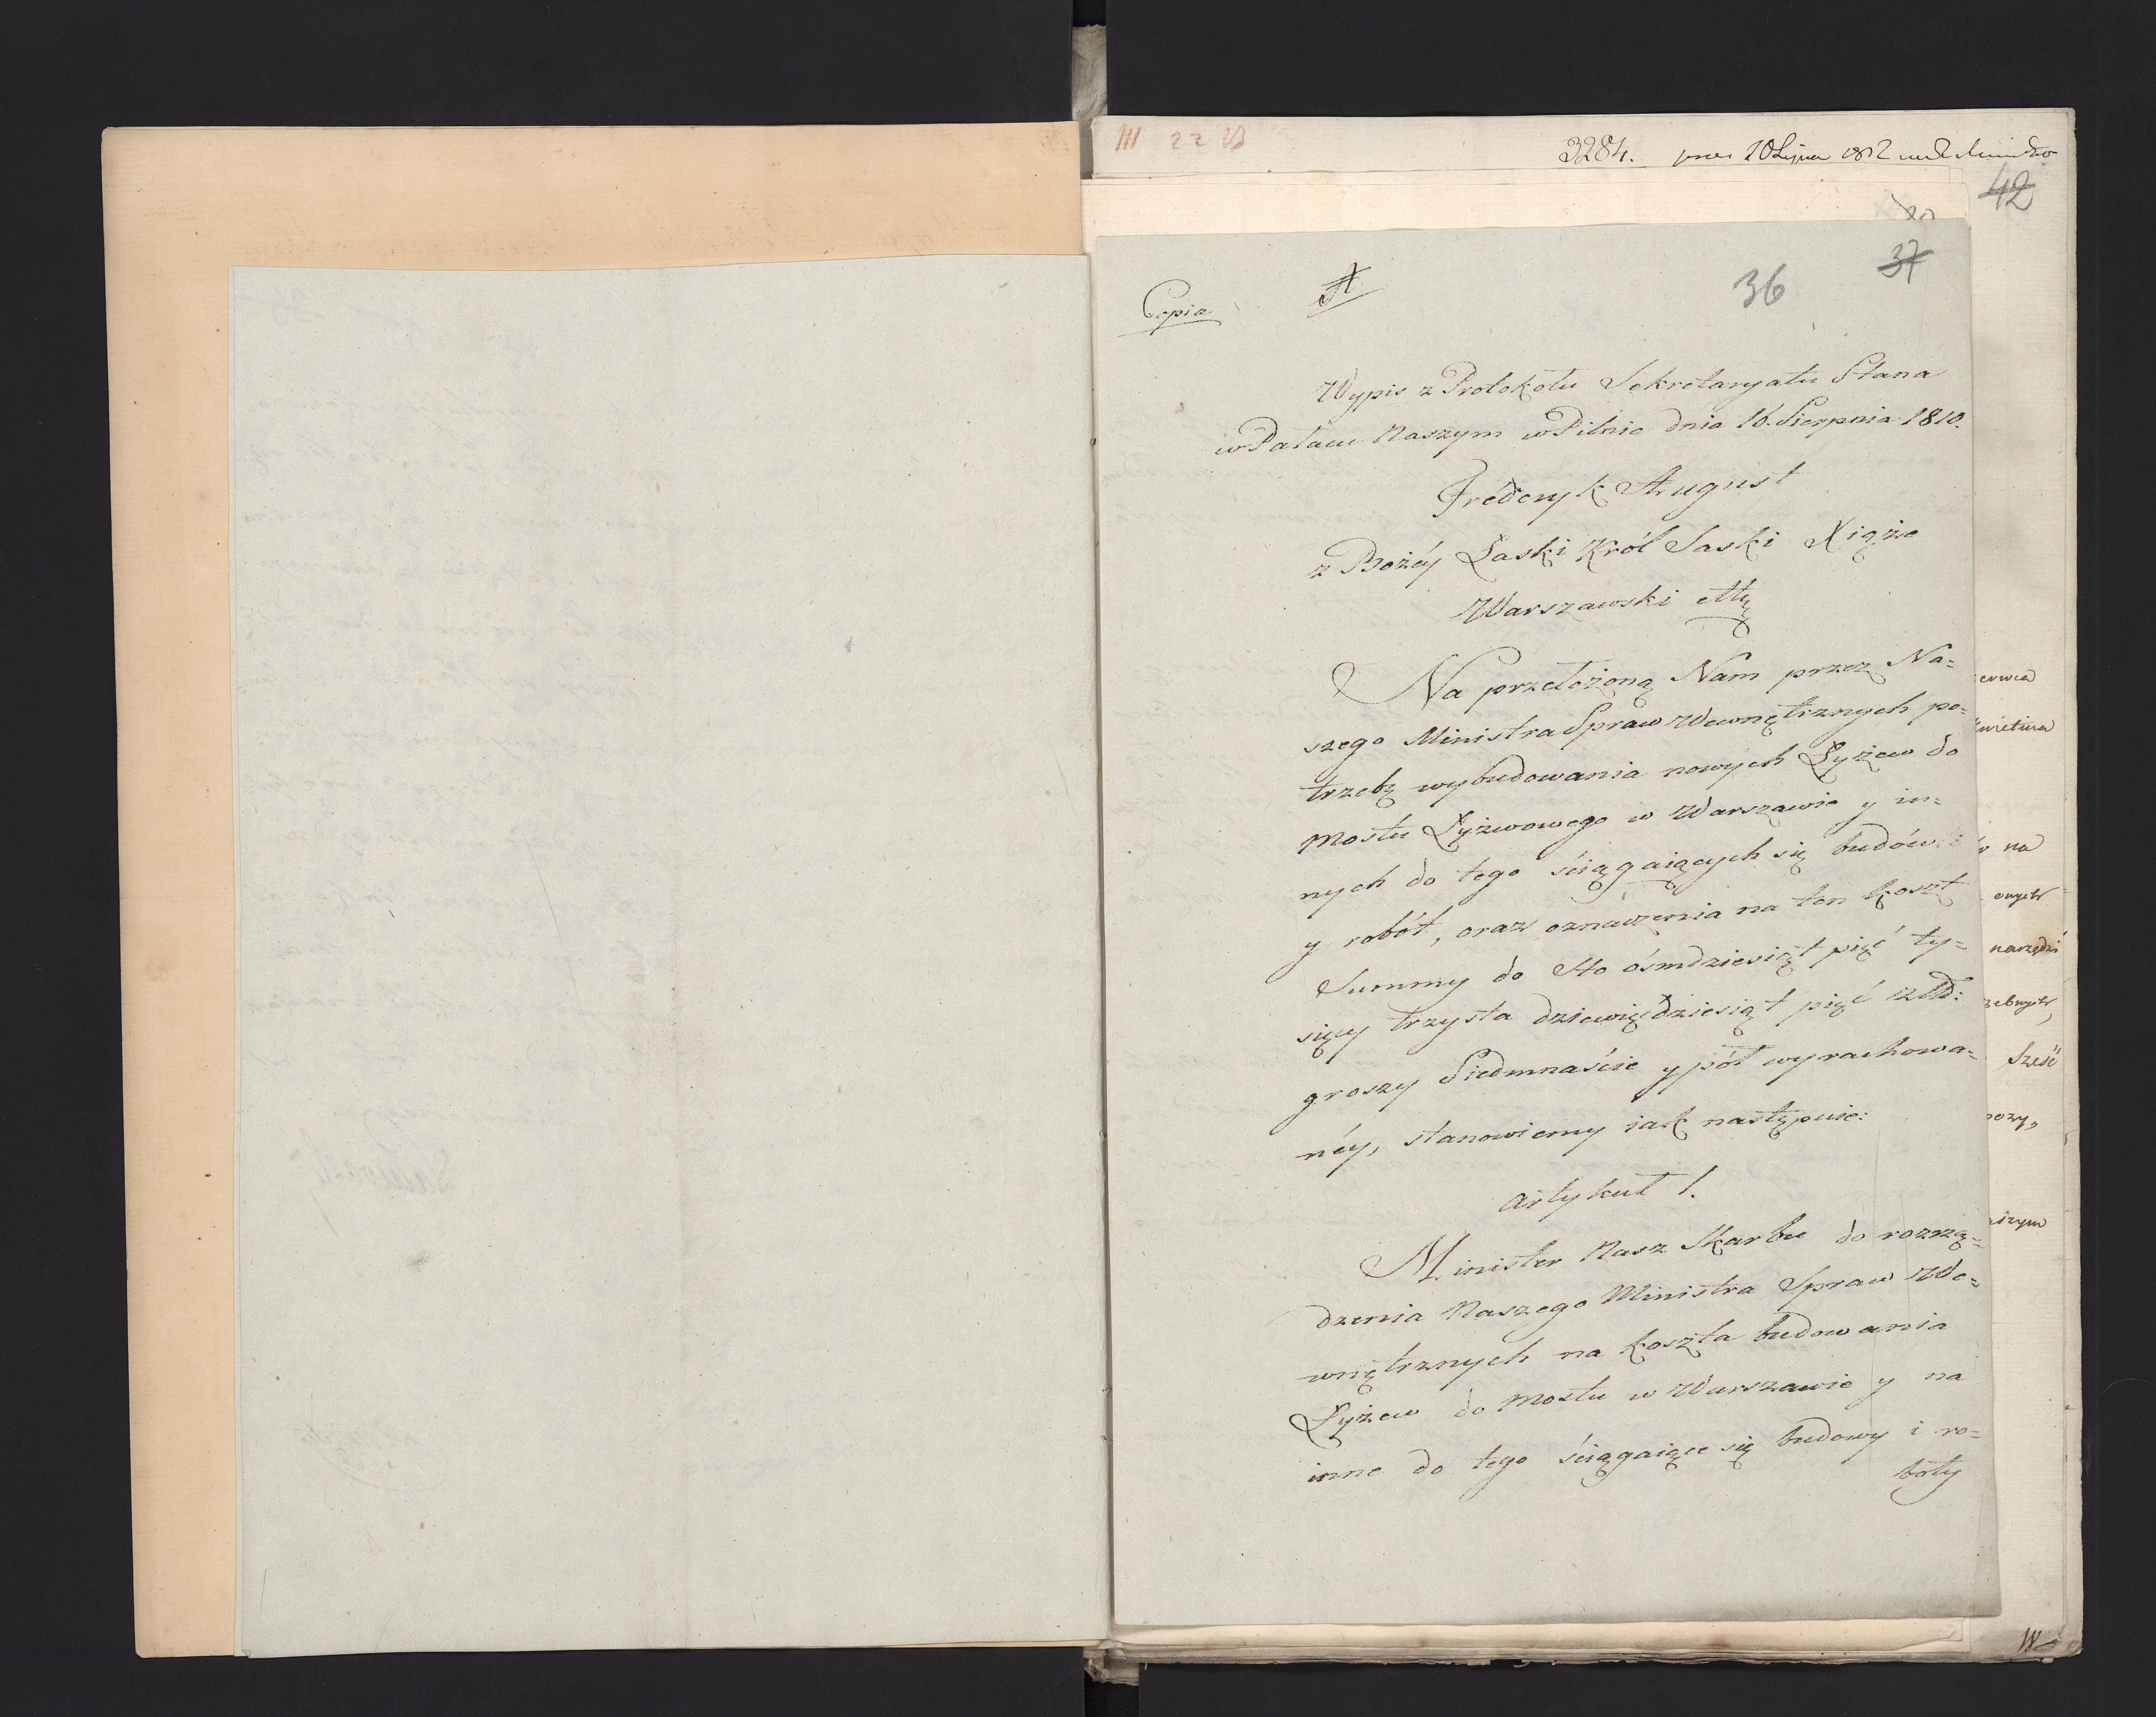 III 22 B
3284.
42
37
36
Copia
A
Wypis z Protokołu Sekretaryatu Stanu
w Pałacu Naszym w Pilnic dnia 16. Sierpnia 1810.
Fréderyk August
z Bożéy Łaski Król Saski Xiąże
Warszawski ettc
Na przełożoną Nam przez Na=
szego Ministra Spraw Wewnętrznych po=
trzebę wybudowania nowych Łyżew do
mostu Łyżwowego w Warszawie y in=
nych do tego ściągaiących się budówli
y robót, oraz oznaczenia na ten koszt
Summy do Sto ośmdziesiąt pięć ty=
sięcy trzysta dziewiędziesiąt pięć Złł:
groszy Siedmnaście y pół wyrachowa=
néy, stanowiemy iak następuie:
Artykuł 1.
Minister Nasz Skarbu do rozrzą=
dzenia Naszego Ministra Spraw We=
wnętrznych na koszta budowania
Łyżew do mostu w Warszawie y na
inne do tego ściągaiące się budowy i ro=
boty
erwca
na
narzędzi
Sześć
W